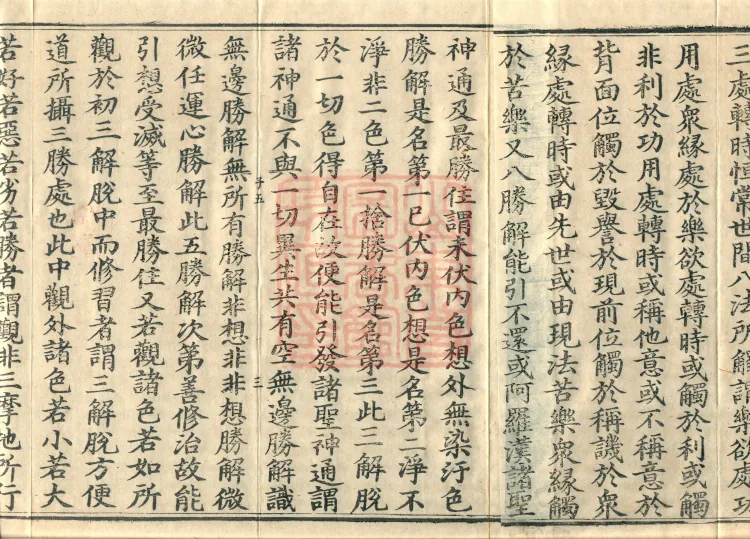 三處轉時恒常世間八法所觸謂樂欲處功
用處眾緣處於樂欲處轉時或觸於利或觸
非利於功用處轉時或稱他意或不稱意於
背面位觸於毀譽於現前位觸於稱譏於眾
緣處轉時或由先世或由現法苦樂眾緣觸
於苦樂又八勝解能引不還或阿羅漢諸聖
神通及最勝住謂未伏內色想外無染汙色
勝解是名第一已伏內色想是名第二淨不
淨非二色第一捨勝解是名第三此三解脫
於一切色得自在故便能引發諸聖神通謂
諸神通不與一切異生共有空無邊勝解識
子五 三
無邊勝解無所有勝解非想非非想勝解微
微任運心勝解此五勝解次第善修治故能
引想受滅等至最勝住又若觀諸色若如所
觀於初三解脫中而修習者謂三解脫方便
道所攝三勝處也此中觀外諸色若小若大
若好若惡若劣若勝者謂觀非三摩地所行